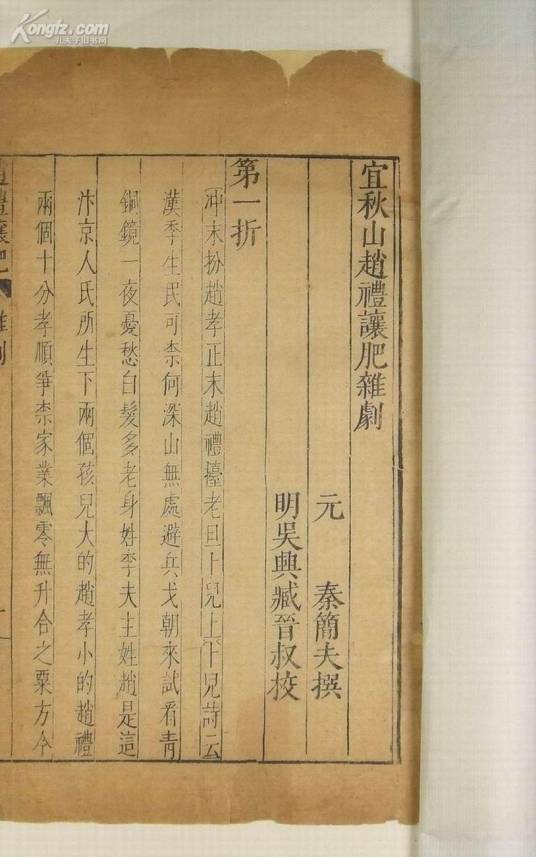 Kongfz.com
孔夫子旧书网
宜秋山趙禮讓肥雜劇
元 秦簡夫撰
明吳興臧晉叔校
第一折
冲末扮趙孝正末趙禮擡老旦卜兒上卜兒詩云
漢季生民可柰何深山無處避兵戈朝來試看青
銅鏡一夜憂愁白髮多老身姓李夫主姓趙是這
汴京人氏所生下兩個孩兒大的趙孝小的趙禮
兩個十分孝順爭柰家業飄零無升合之粟方今
趙禮讓肥 雜劇 一